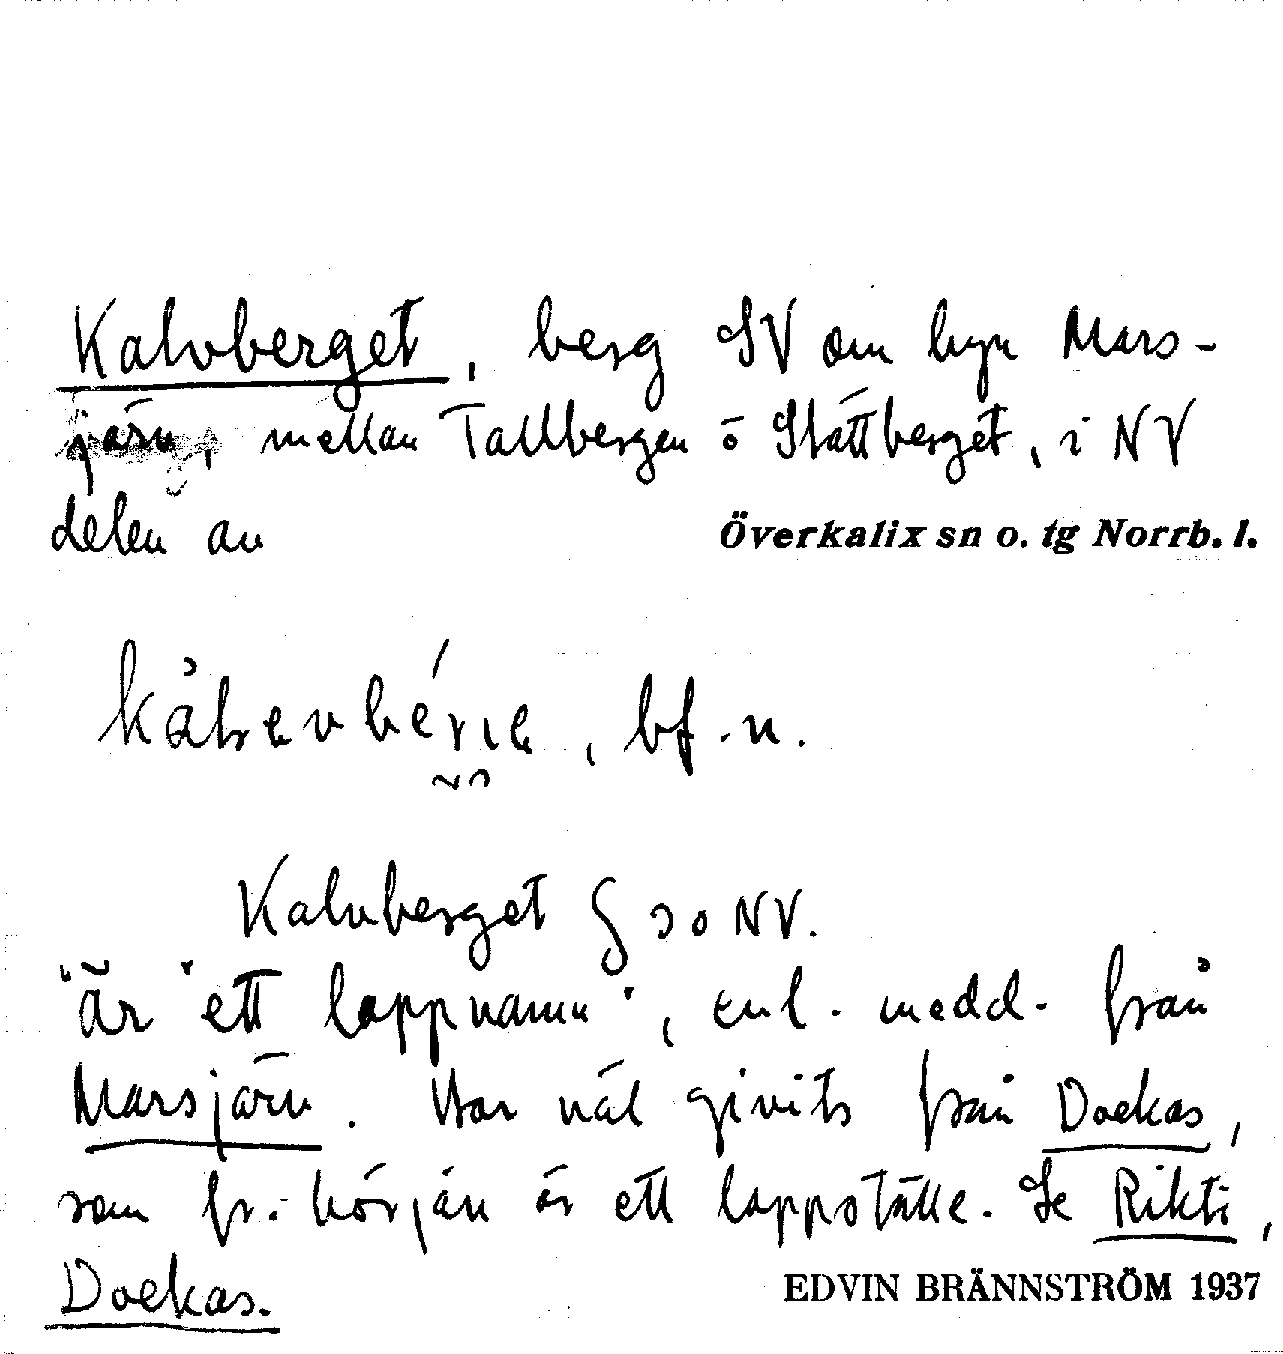 Kalvberget, berg SV om byn Mars-
järv, mellan Tallbergen o Slättberget, i NV
delen av Överkalix sn o. tg Norrb. l.
bf. n.
Kalvberget § 30 NV.
"är "ett lappnamn", enl. medd. från
Marsjärv. Har väl givits från Dockas,
som fr. början är ett lappställe. Se Rikti,
Dockas.
EDVIN BRÄNNSTRÖM 1937